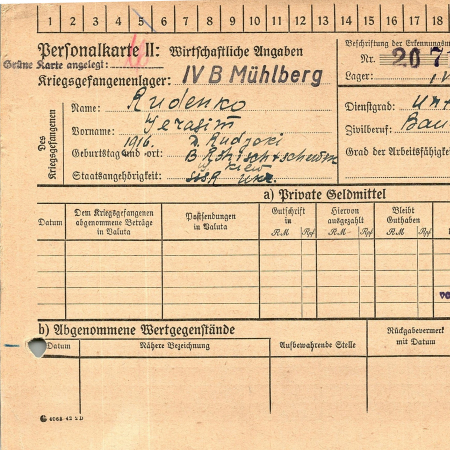 1 2 3 4 5 6 7 8 9 10 11 12 13 14 15 16 17 18
Personalkarte II: Wirtschaftliche Angaben
Grüne Karte angelegt:
Kriegsgefangenenlager: IV B Mühlberg
Beschriftung der Erkennungsm
Nr. 207
Lager: IV
Des Kriegsgefangenen
Name: Rudenko
Vorname: Jerasim
Geburtstag und -ort: 1916. D. Rudzoki
B.
Kiew
Staatsangehörigkeit: SSSR Ukr.
Dienstgrad:
Zivilberuf: Bau
Grad der Arbeitsfähigkei
a) Private Geldmittel
Datum
Dem Kriegsgefangenen abgenommene Beträge in Valuta
Paßsendungen in Valuta
Gutschrift in
RM Rpf
Hiervon ausgezahlt
RM Rpf
Bleibt Guthaben
RM Rpf
b) Abgenommene Wertgegenstände
Datum
Nähere Bezeichnung
Aufbewahrende Stelle
Rückgabevermerk mit Datum